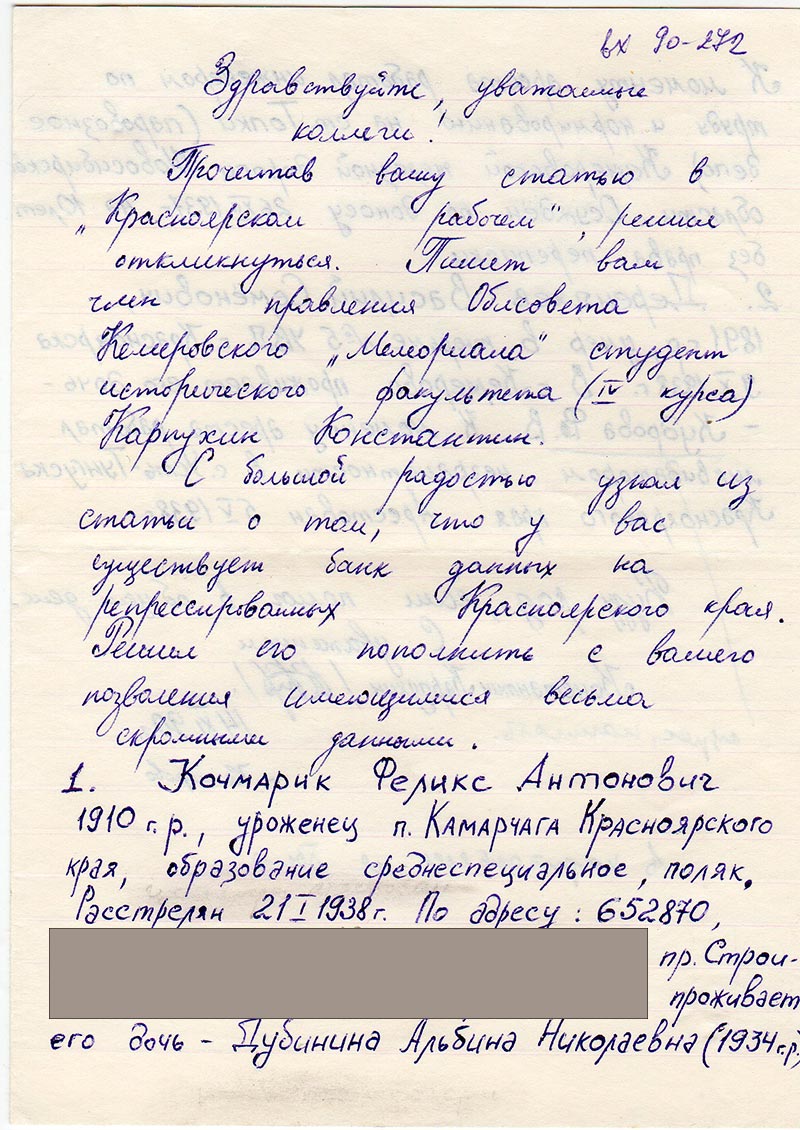 вх 90-272
Здравствуйте, уважаемые
коллеги!
Прочитав вашу статью в
„Красноярском рабочем", решил
откликнуться. Пишет вам
член правления Облсовета
Кемеровского „Мемориала" студент
исторического факультета (IV курса)
Карпухин Константин.
С большой радостью узнал из
статьи о том, что у вас
существует банк данных на
репрессированных Красноярского края.
Решил его пополнить с вашего
позволения имеющимися весьма
скромными данными.
1. Кочмарик Феликс Антонович
1910 г.р., уроженец п. Камарчага Красноярского
края, образование среднеспециальное, поляк.
Расстрелян 21 I 1938 г. По адресу: 652870,
пр. Строи-
проживает
его дочь - Дубинина Альбина Николаевна (1934 г.р.)